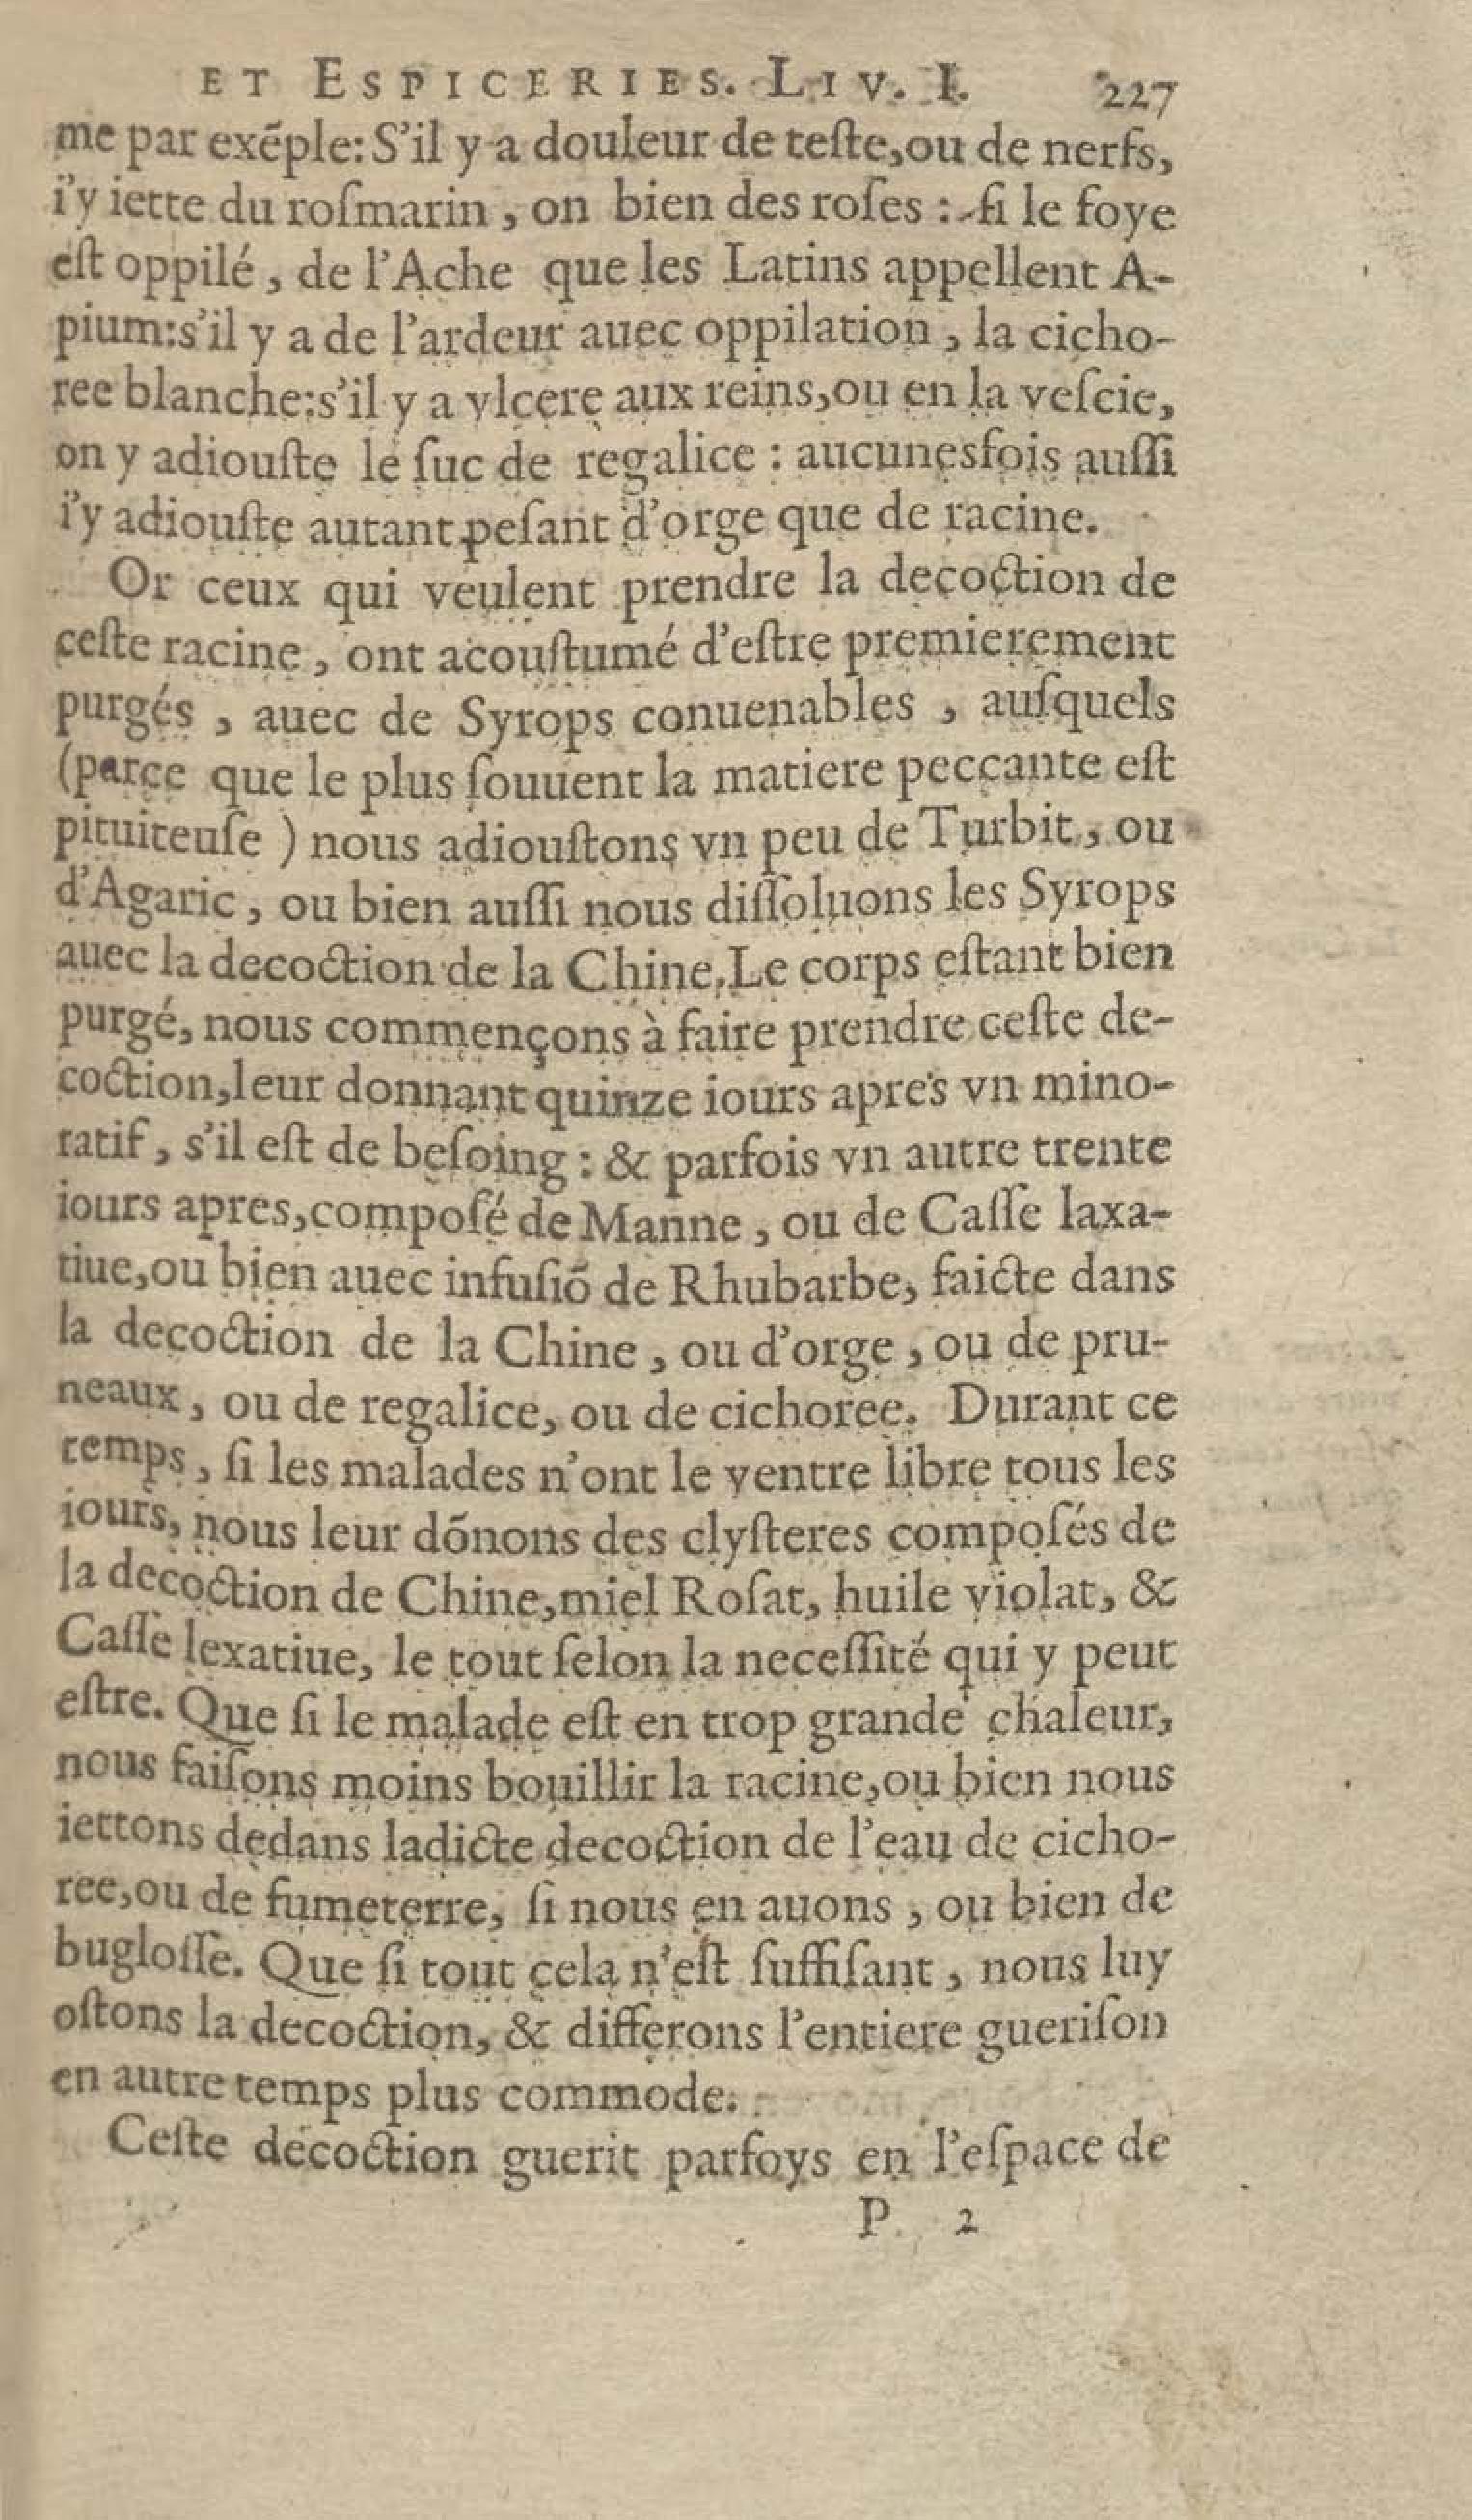 ET ESPICERIES. LIV. I. 227
me par exẽple: S'il y a douleur de teſte, ou de nerfs,
i'y iette du roſmarin, on bien des roſes : ſi le foye
eſt oppilé, de l'Ache que les Latins appellent A-
pium: s'il y a de l'ardeur auec oppilation, la cicho-
ree blanche: s'il y a vlcere aux reins, ou en la veſcie,
on y adiouſte le ſuc de regalice : aucunesfois auſſi
i'y adiouſte autant peſant d'orge que de racine.
Or ceux qui veulent prendre la decoction de
ceſte racine, ont acouſtumé d'eſtre premierement
purgés, auec de Syrops conuenables, auſquels
(parce que le plus ſouuent la matiere peccante eſt
pituiteuſe) nous adiouſtons vn peu de Turbit, ou
d'Agaric, ou bien auſſi nous diſſoluons les Syrops
auec la decoction de la Chine. Le corps eſtant bien
purgé, nous commençons à faire prendre ceſte de-
coction, leur donnant quinze iours apres vn mino-
ratif, s'il eſt de beſoing : & parfois vn autre trente
iours apres, compoſé de Manne, ou de Caſſe laxa-
tiue, ou bien auec infuſiõ de Rhubarbe, faicte dans
la decoction de la Chine, ou d'orge, ou de pru-
neaux, ou de regalice, ou de cichoree. Durant ce
temps, ſi les malades n'ont le ventre libre tous les
iours, nous leur dõnons des clyſteres compoſés de
la decoction de Chine, miel Roſat, huile violat, &
Caſſe lexatiue, le tout ſelon la neceſſité qui y peut
eſtre. Que ſi le malade eſt en trop grande chaleur,
nous faiſons moins bouillir la racine, ou bien nous
iettons dedans ladicte decoction de l'eau de cicho-
ree, ou de fumeterre, ſi nous en auons, ou bien de
bugloſſe. Que ſi tout cela n'eſt ſuffiſant, nous luy
oſtons la decoction, & differons l'entiere gueriſon
en autre temps plus commode.
Ceſte decoction guerit parfoys en l'eſpace de
P 2